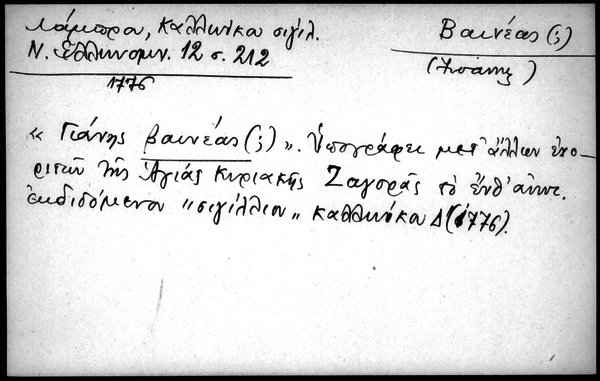 Λάμπρου, Καλλινίκου σιγίλ.
Ν. Ἑλληνομν. 12 σ. 212
1776
Βαινέας (;)
(Ἰωάννης)
« Γιάννης βαινέας (;) ». Ὑπογράφει μετ' ἄλλων ἐνο-
ριτῶν τῆς Ἁγίας Κυριακῆς Ζαγορᾶς τὸ ἔνθ' ἀνωτ.
ἐκδιδόμενον "σιγίλλιον" Καλλινίκου Δ (1776).